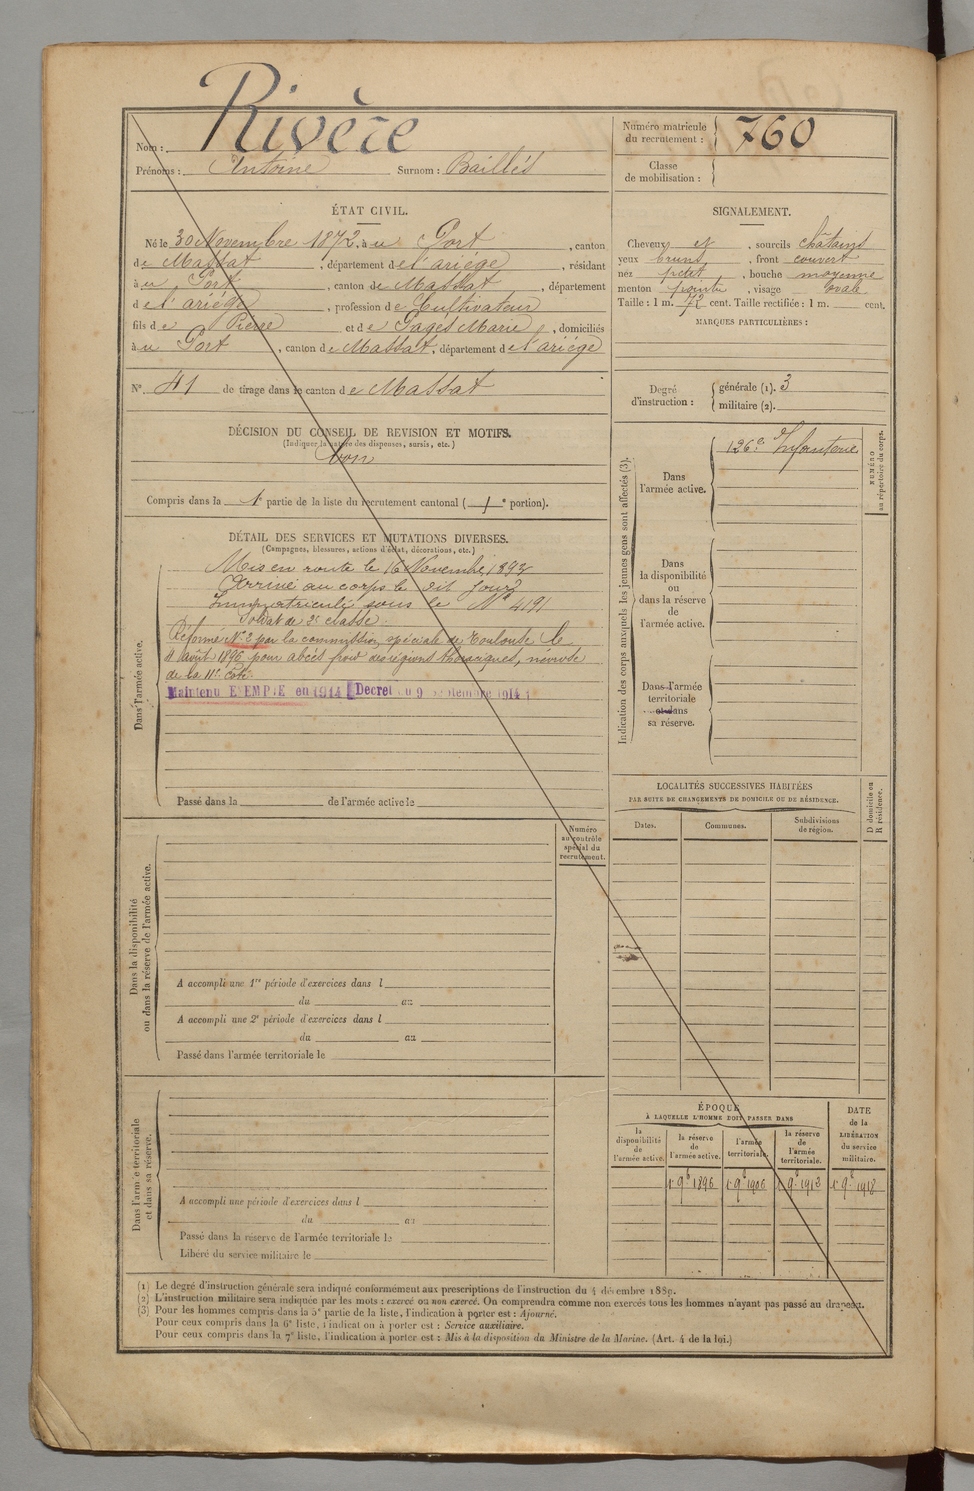 Rivère
Nom :
Prénoms : Antoine Surnom : Baillés
Numéro matricule du recrutement : 760
Classe de mobilisation :
ÉTAT CIVIL.
Né le 30 Novembre 1872, à u Port, canton
de Massat, département de l'ariége, résidant
à u Port, canton de Massat, département
de l'ariége, profession de Cultivateur
fils de Pierre et de Pagès Marie, domiciliés
à u Port, canton de Massat, département de l'ariége
N° 41 de tirage dans le canton de Massat
SIGNALEMENT.
Cheveux et, sourcils châtains
yeux bruns, front couvert
nez petit, bouche moyenne
menton pointu, visage ovale
Taille : 1 m. 72 cent. Taille rectifiée : 1 m. cent.
MARQUES PARTICULIÈRES :
Degré d'instruction : générale (1). 3
militaire (2).
DÉCISION DU CONSEIL DE REVISION ET MOTIFS.
(Indiquer la nature des dispenses, sursis, etc.)
Bon
Compris dans la 1e partie de la liste du recrutement cantonal ( 1e portion).
DÉTAIL DES SERVICES ET MUTATIONS DIVERSES.
(Campagnes, blessures, actions d'éclat, décorations, etc.)
Dans l'armée active.
Mis en route le 16 Novembre 1893
Arrivé au corps le dit jour
Immatriculé sous le N° 4191
Soldat de 2e classe.
Réformé N° 2 par la commission spéciale de Toulouse le
11 août 1896 pour abcès froid des régions thoraciques, névrose
de la 11e côte.
Maintenu EXEMPTE en 1914 Decret du 9 septembre 1914
Passé dans la de l'armée active le
Indication des corps auxquels les jeunes gens sont affectés (3).
Dans l'armée active.
126e Infanterie
NUMÉRO au répertoire du corps.
Dans la disponibilité ou dans la réserve de l'armée active.
Dans l'armée territoriale et dans sa réserve.
LOCALITÉS SUCCESSIVES HABITÉES
PAR SUITE DE CHANGEMENTS DE DOMICILE OU DE RÉSIDENCE.
D domicile ou R résidence.
Dates. Communes. Subdivisions de région.
Numéro au contrôle spécial du recrutement.
Dans la disponibilité ou dans la réserve de l'armée active.
A accompli une 1re période d'exercices dans l
du au
A accompli une 2e période d'exercices dans l
du au
Passé dans l'armée territoriale le
Dans l'armée territoriale et dans sa réserve.
A accompli une période d'exercices dans l
du au
Passé dans la réserve de l'armée territoriale le
Libéré du service militaire le
ÉPOQUE
À LAQUELLE L'HOMME DOIT PASSER DANS
la disponibilité de l'armée active. la réserve de l'armée active. l'armée territoriale. la réserve de l'armée territoriale.
DATE de la LIBÉRATION du service militaire.
1er 9bre 1896 1er 9bre 1906 1er 9bre 1913 1er 9bre 1918
(1) Le degré d'instruction générale sera indiqué conformément aux prescriptions de l'instruction du 4 décembre 1889.
(2) L'instruction militaire sera indiquée par les mots : exercé ou non exercé. On comprendra comme non exercés tous les hommes n'ayant pas passé au drapeau.
(3) Pour les hommes compris dans la 5e partie de la liste, l'indication à porter est : Ajourné.
Pour ceux compris dans la 6e liste, l'indication à porter est : Service auxiliaire.
Pour ceux compris dans la 7e liste, l'indication à porter est : Mis à la disposition du Ministre de la Marine. (Art. 4 de la loi.)